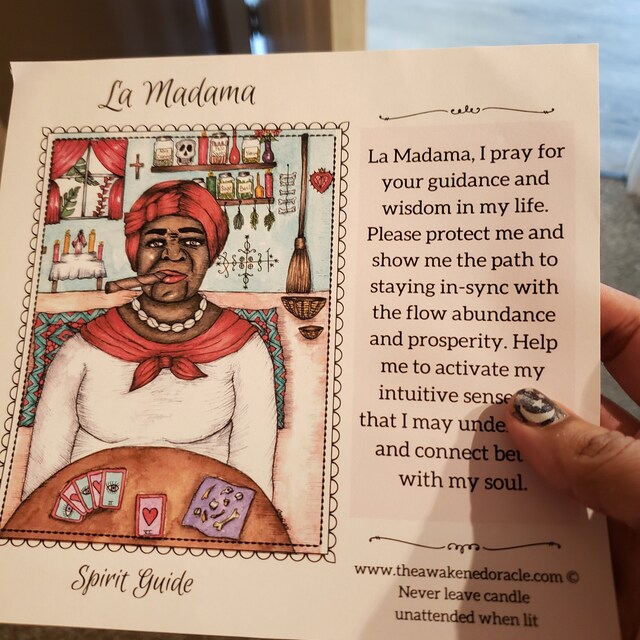 La Madama
Spirit Guide
La Madama, I pray for
your guidance and
wisdom in my life.
Please protect me and
show me the path to
staying in-sync with
the flow abundance
and prosperity. Help
me to activate my
intuitive sense
that I may unde
and connect be
with my soul.
www.theawakenedoracle.com ©
Never leave candle
unattended when lit